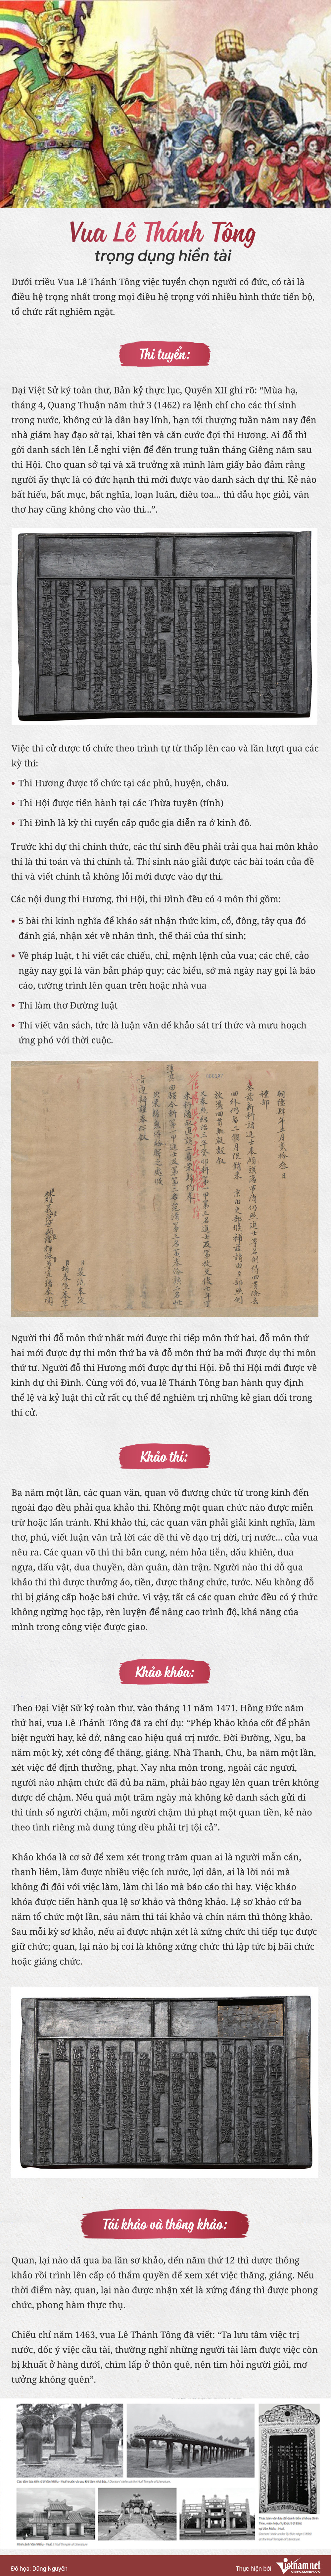 Vua Lê Thánh Tông
trọng dụng hiền tài
Dưới triều Vua Lê Thánh Tông việc tuyển chọn người có đức, có tài là
điều hệ trọng nhất trong mọi điều hệ trọng với nhiều hình thức tiến bộ,
tổ chức rất nghiêm ngặt.
Thi tuyển:
Đại Việt Sử ký toàn thư, Bản kỷ thực lục, Quyển XII ghi rõ: “Mùa hạ,
tháng 4, Quang Thuận năm thứ 3 (1462) ra lệnh chỉ cho các thí sinh
trong nước, không cứ là dân hay lính, hạn tới thượng tuần năm nay đến
nhà giám hay đạo sở tại, khai tên và căn cước đợi thi Hương. Ai đỗ thì
gởi danh sách lên Lễ nghi viện để đến trung tuần tháng Giêng năm sau
thi Hội. Cho quan sở tại và xã trưởng xã mình làm giấy bảo đảm rằng
người ấy thực là có đức hạnh thì mới được vào danh sách dự thi. Kẻ nào
bất hiếu, bất mục, bất nghĩa, loạn luân, điêu toa... thì dẫu học giỏi, văn
thơ hay cũng không cho vào thi...”.
Việc thi cử được tổ chức theo trình tự từ thấp lên cao và lần lượt qua các
kỳ thi:
• Thi Hương được tổ chức tại các phủ, huyện, châu.
• Thi Hội được tiến hành tại các Thừa tuyên (tỉnh)
• Thi Đình là kỳ thi tuyển cấp quốc gia diễn ra ở kinh đô.
Trước khi dự thi chính thức, các thí sinh đều phải trải qua hai môn khảo
thí là thi toán và thi chính tả. Thí sinh nào giải được các bài toán của đề
thi và viết chính tả không lỗi mới được vào dự thi.
Các nội dung thi Hương, thi Hội, thi Đình đều có 4 môn thi gồm:
• 5 bài thi kinh nghĩa để khảo sát nhận thức kim, cổ, đông, tây qua đó
đánh giá, nhận xét về nhân tình, thế thái của thí sinh;
• Về pháp luật, t hi viết các chiếu, chỉ, mệnh lệnh của vua; các chế, cảo
ngày nay gọi là văn bản pháp quy; các biểu, sớ mà ngày nay gọi là báo
cáo, tường trình lên quan trên hoặc nhà vua
• Thi làm thơ Đường luật
• Thi viết văn sách, tức là luận văn để khảo sát trí thức và mưu hoạch
ứng phó với thời cuộc.
Người thi đỗ môn thứ nhất mới được thi tiếp môn thứ hai, đỗ môn thứ
hai mới được dự thi môn thứ ba và đỗ môn thứ ba mới được dự thi môn
thứ tư. Người đỗ thi Hương mới được dự thi Hội. Đỗ thi Hội mới được về
kinh dự thi Đình. Cùng với đó, vua lê Thánh Tông ban hành quy định
thể lệ và kỷ luật thi cử rất cụ thể để nghiêm trị những kẻ gian dối trong
thi cử.
Khảo thi:
Ba năm một lần, các quan văn, quan võ đương chức từ trong kinh đến
ngoài đạo đều phải qua khảo thi. Không một quan chức nào được miễn
trừ hoặc lẩn tránh. Khi khảo thi, các quan văn phải giải kinh nghĩa, làm
thơ, phú, viết luận văn trả lời các đề thi về đạo trị đời, trị nước... của vua
nêu ra. Các quan võ thì thi bắn cung, ném hỏa tiễn, đấu khiên, đua
ngựa, đấu vật, đua thuyền, dàn quân, dàn trận. Người nào thi đỗ qua
khảo thi thì được thưởng áo, tiền, được thăng chức, tước. Nếu không đỗ
thì bị giáng cấp hoặc bãi chức. Vì vậy, tất cả các quan chức đều có ý thức
không ngừng học tập, rèn luyện để nâng cao trình độ, khả năng của
mình trong công việc được giao.
Khảo khóa:
Theo Đại Việt Sử ký toàn thư, vào tháng 11 năm 1471, Hồng Đức năm
thứ hai, vua Lê Thánh Tông đã ra chỉ dụ: “Phép khảo khóa cốt để phân
biệt người hay, kẻ dở, nâng cao hiệu quả trị nước. Đời Đường, Ngu, ba
năm một kỳ, xét công để thăng, giáng. Nhà Thanh, Chu, ba năm một lần,
xét việc để định thưởng, phạt. Nay nha môn trong, ngoài các ngươi,
người nào nhậm chức đã đủ ba năm, phải báo ngay lên quan trên không
được để chậm. Nếu quá một trăm ngày mà không kê danh sách gửi đi
thì tính số người chậm, mỗi người chậm thì phạt một quan tiền, kẻ nào
theo tình riêng mà dung túng đều phải trị tội cả”.
Khảo khóa là cơ sở để xem xét trong trăm quan ai là người mẫn cán,
thanh liêm, làm được nhiều việc ích nước, lợi dân, ai là lời nói mà
không đi đôi với việc làm, làm thì láo mà báo cáo thì hay. Việc khảo
khóa được tiến hành qua lệ sơ khảo và thông khảo. Lệ sơ khảo cứ ba
năm tổ chức một lần, sáu năm thì tái khảo và chín năm thì thông khảo.
Sau mỗi kỳ sơ khảo, nếu ai được nhận xét là xứng chức thì tiếp tục được
giữ chức; quan, lại nào bị coi là không xứng chức thì lập tức bị bãi chức
hoặc giáng chức.
Tái khảo và thông khảo:
Quan, lại nào đã qua ba lần sơ khảo, đến năm thứ 12 thì được thông
khảo rồi trình lên cấp có thẩm quyền để xem xét việc thăng, giáng. Nếu
thời điểm này, quan, lại nào được nhận xét là xứng đáng thì được phong
chức, phong hàm thực thụ.
Chiếu chỉ năm 1463, vua Lê Thánh Tông đã viết: “Ta lưu tâm việc trị
nước, dốc ý việc cầu tài, thường nghĩ những người tài làm được việc còn
bị khuất ở hàng dưới, chìm lấp ở thôn quê, nên tìm hỏi người giỏi, mơ
tưởng không quên”.
Đồ họa: Dũng Nguyễn
Thực hiện bởi
Vietnamnet